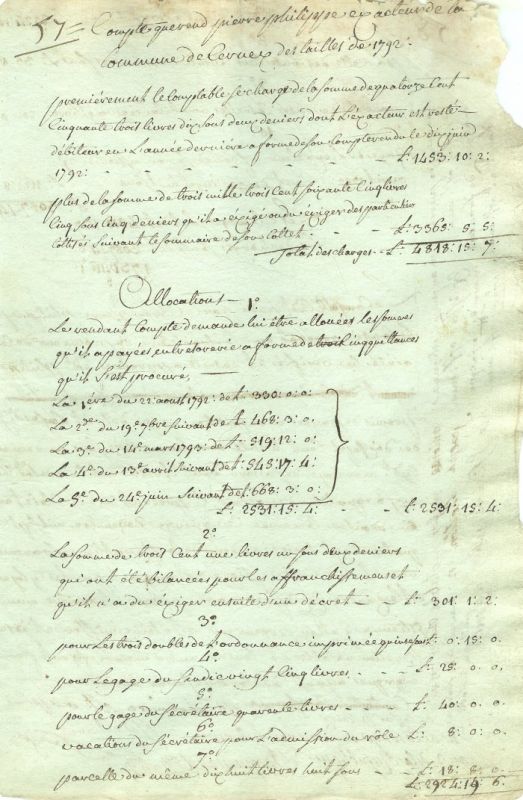 57= Compte que rend pierre philippe exacteur de la
commune de Cernex des tailles de 1792.
premièrement le Comptable se charge de la somme de quatorze Cent
Cinquante trois livres dix sous deux deniers dont L'exacteur est resté
débiteur en L'année derniere a forme de son Compte rendu le dix juin
1792: - - - - L: 1453: 10: 2:
plus de la somme de trois mille trois Cent soixante Cinq livres
Cinq sous Cinq deniers qu'il a exigé ou du exiger des particulier
Cottisés Suivant le sommaire de son Cottet - - L: 3365: 5: 5:
Total des charges - L: 4818: 15: 7:
Allocations - 1°
Le rendant Compte demande lui être allouées les sommes
qu'il a payées en trésorerie a forme de cinq quittances
qu'il s'est procuré, -
La 1ère du 22 aoust 1792: de L: 330: 0: 0:
La 2de du 19e 7bre suivant de L: 468: 3: 0.
La 3e du 14e mars 1793: de L: 519: 12: 0:
La 4e du 13e avril suivant de L: 545: 17: 4:
La 5e du 24e juin Suivant de L: 668: 3: 0:
L: 2531: 15: 4: - - L: 2531: 15: 4:
2°
La somme de trois Cent une livres un sous deux deniers
qui ont été bilancées pour les affranchissements et
qu'il n'a du exiger ensuite d'un décret - - L: 301: 1: 2:
3°
pour Les trois doubles de L'ordonnance imprimée quinze sous L: 0: 15: 0:
4°
pour Le gage du Sindic vingt Cinq livres - - L: 25: 0. 0.
5°
pour le gage du Sécrétaire quarente livres - - L: 40: 0: 0.
6°
vacations du Sécrétaire pour L'admission du rôle L: 8: 0: 0:
7°
parcelle du même dix huit livres huit sous - - L: 18: 8: 0:
L: 2924: 19: 6.